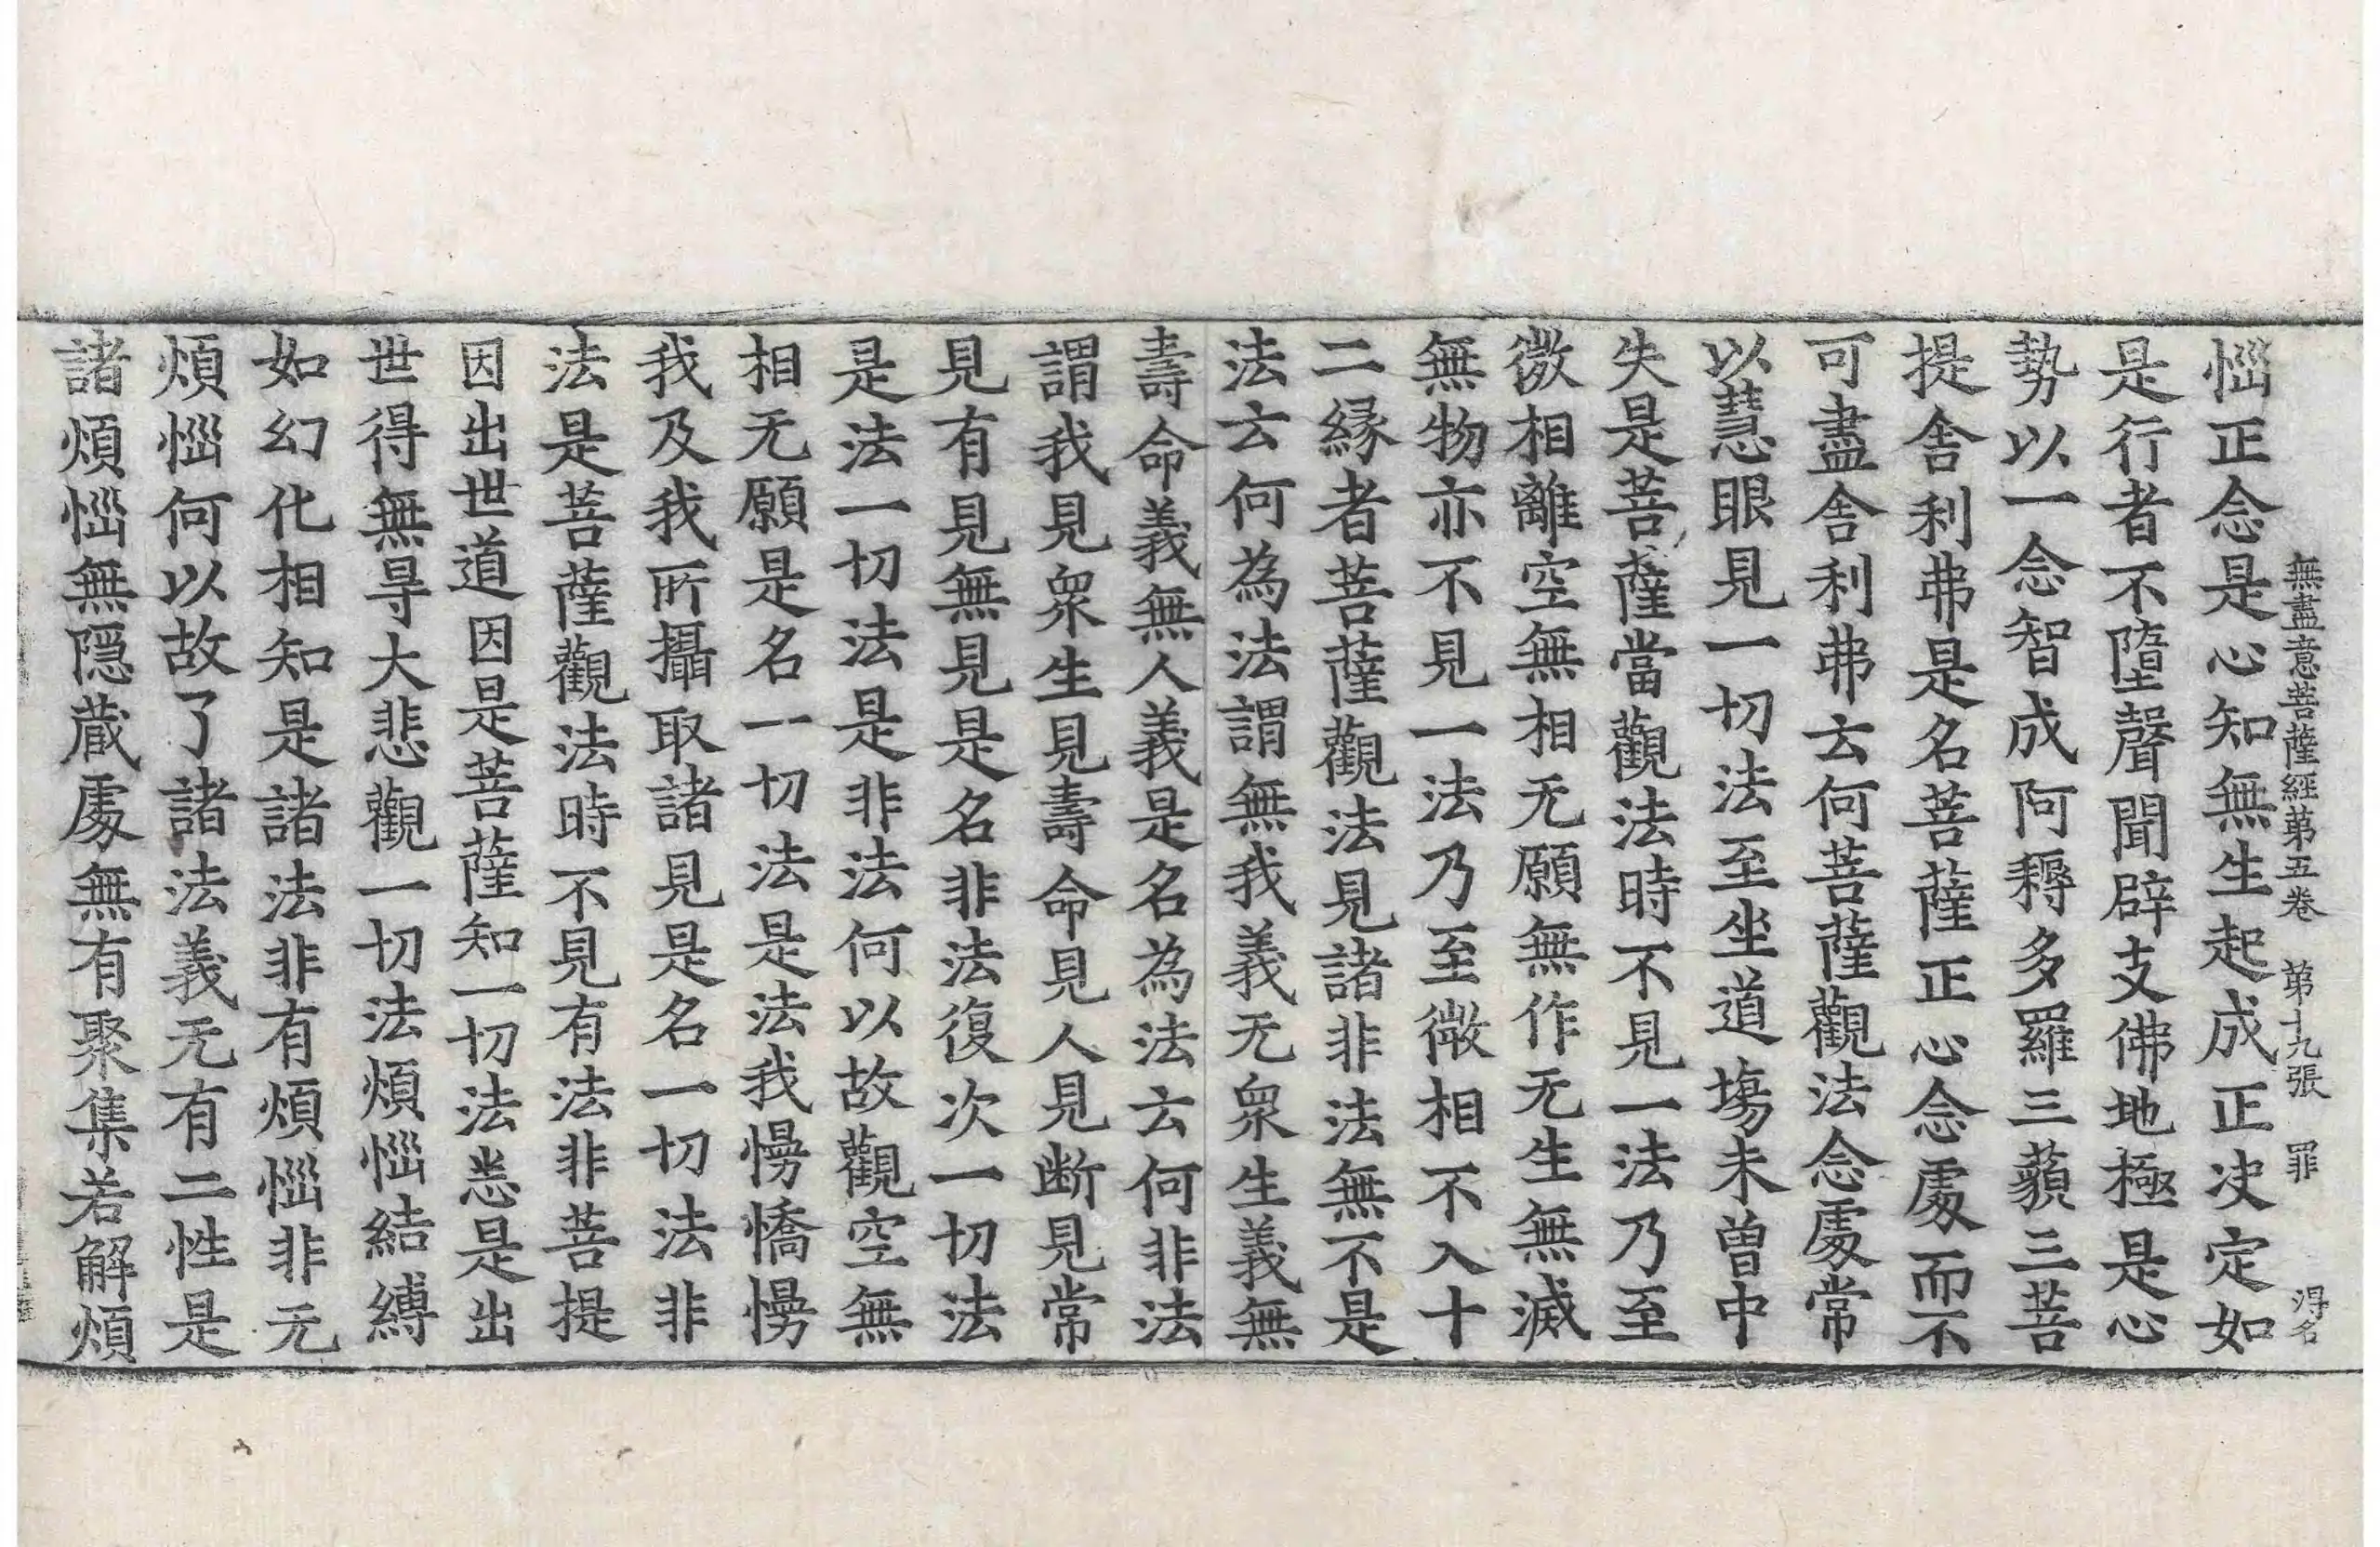 無盡意菩薩經第五卷 第十九張 罪 得名
惱正念是心知無生起成正决定如
是行者不墮聲聞辟支佛地極是心
勢以一念智成阿耨多羅三藐三菩
提舍利弗是名菩薩正心念處而不
可盡舍利弗云何菩薩觀法念處常
以慧眼見一切法至坐道場未曾中
失是菩薩當觀法時不見一法乃至
微相離空無相无願無作无生無滅
無物亦不見一法乃至微相不入十
二緣者菩薩觀法見諸非法無不是
法云何為法謂無我義无衆生義無
壽命義無人義是名為法云何非法
謂我見衆生見壽命見人見断見常
見有見無見是名非法復次一切法
是法一切法是非法何以故觀空無
相无願是名一切法是法我慢憍慢
我及我所攝取諸見是名一切法非
法是菩薩觀法時不見有法非菩提
因出世道因是菩薩知一切法悉是出
世得無㝵大悲觀一切法煩惱結縛
如幻化相知是諸法非有煩惱非无
煩惱何以故了諸法義无有二性是
諸煩惱無隱蔵處無有聚集若解煩